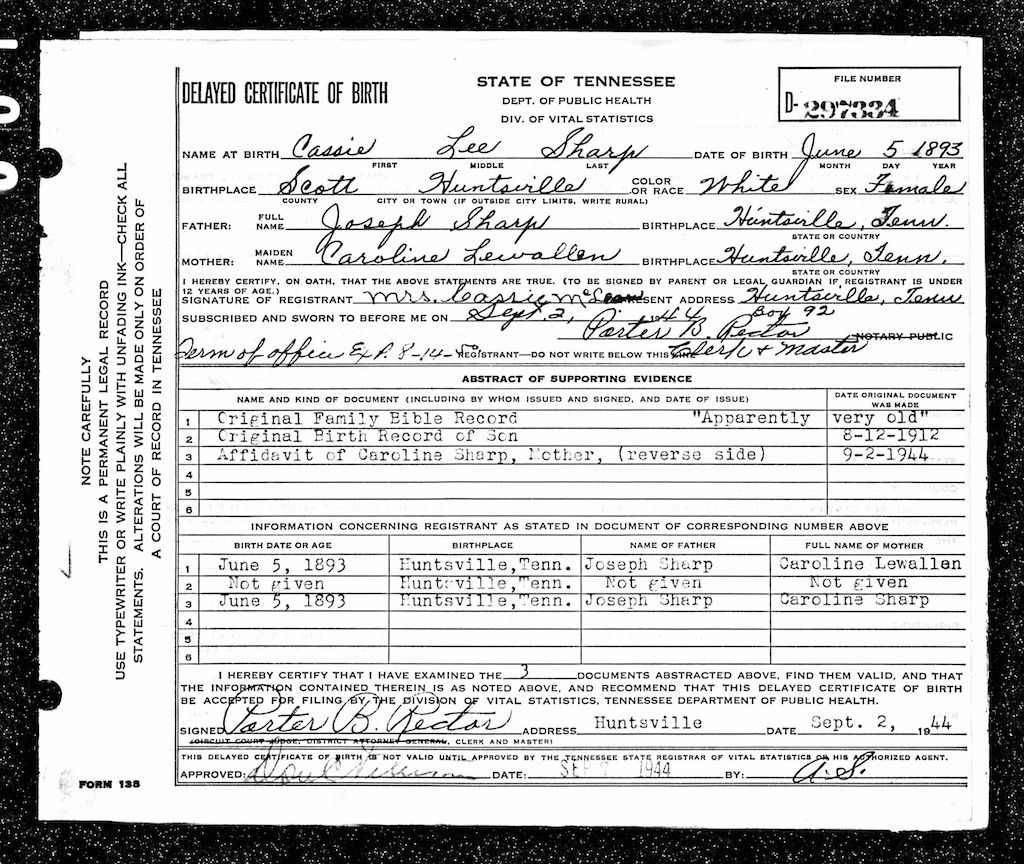 DELAYED CERTIFICATE OF BIRTH
STATE OF TENNESSEE
DEPT. OF PUBLIC HEALTH
DIV. OF VITAL STATISTICS
FILE NUMBER
D- 297334
NAME AT BIRTH Cassie Lee Sharp DATE OF BIRTH June 5 1893
FIRST MIDDLE LAST MONTH DAY YEAR
BIRTHPLACE Scott Huntsville COLOR OR RACE White SEX Female
COUNTY CITY OR TOWN (IF OUTSIDE CITY LIMITS, WRITE RURAL)
FATHER: FULL NAME Joseph Sharp BIRTHPLACE Huntsville, Tenn.
STATE OR COUNTRY
MOTHER: MAIDEN NAME Caroline Lewallen BIRTHPLACE Huntsville, Tenn.
STATE OR COUNTRY
I HEREBY CERTIFY, ON OATH, THAT THE ABOVE STATEMENTS ARE TRUE. (TO BE SIGNED BY PARENT OR LEGAL GUARDIAN IF REGISTRANT IS UNDER
12 YEARS OF AGE.)
SIGNATURE OF REGISTRANT Mrs. Cassie SENT ADDRESS Huntsville, Tenn
SUBSCRIBED AND SWORN TO BEFORE ME ON Sept. 2, 44 Box 92
Porter B. Rector NOTARY PUBLIC
Term of office Exp. 8-14-50 REGISTRANT—DO NOT WRITE BELOW THIS LINE Clerk & Master
ABSTRACT OF SUPPORTING EVIDENCE
NAME AND KIND OF DOCUMENT (INCLUDING BY WHOM ISSUED AND SIGNED, AND DATE OF ISSUE) DATE ORIGINAL DOCUMENT WAS MADE
1 Original Family Bible Record "Apparently very old"
2 Original Birth Record of Son 8-12-1912
3 Affidavit of Caroline Sharp, Mother, (reverse side) 9-2-1944
4
5
6
INFORMATION CONCERNING REGISTRANT AS STATED IN DOCUMENT OF CORRESPONDING NUMBER ABOVE
BIRTH DATE OR AGE BIRTHPLACE NAME OF FATHER FULL NAME OF MOTHER
1 June 5, 1893 Huntsville,Tenn. Joseph Sharp Caroline Lewallen
2 Not given Huntsville,Tenn. Not given Not given
3 June 5, 1893 Huntsville,Tenn. Joseph Sharp Caroline Sharp
4
5
6
I HEREBY CERTIFY THAT I HAVE EXAMINED THE 3 DOCUMENTS ABSTRACTED ABOVE, FIND THEM VALID, AND THAT
THE INFORMATION CONTAINED THEREIN IS AS NOTED ABOVE, AND RECOMMEND THAT THIS DELAYED CERTIFICATE OF BIRTH
BE ACCEPTED FOR FILING BY THE DIVISION OF VITAL STATISTICS, TENNESSEE DEPARTMENT OF PUBLIC HEALTH.
SIGNED Porter B. Rector ADDRESS Huntsville DATE Sept. 2, 1944
(CIRCUIT COURT JUDGE, DISTRICT ATTORNEY GENERAL, CLERK AND MASTER)
THIS DELAYED CERTIFICATE OF BIRTH IS NOT VALID UNTIL APPROVED BY THE TENNESSEE STATE REGISTRAR OF VITAL STATISTICS OR HIS AUTHORIZED AGENT.
APPROVED: DATE: SEP 1944 BY: A.S.
FORM 138
NOTE CAREFULLY
THIS IS A PERMANENT LEGAL RECORD
USE TYPEWRITER OR WRITE PLAINLY WITH UNFADING INK—CHECK ALL
STATEMENTS. ALTERATIONS WILL BE MADE ONLY ON ORDER OF
A COURT OF RECORD IN TENNESSEE